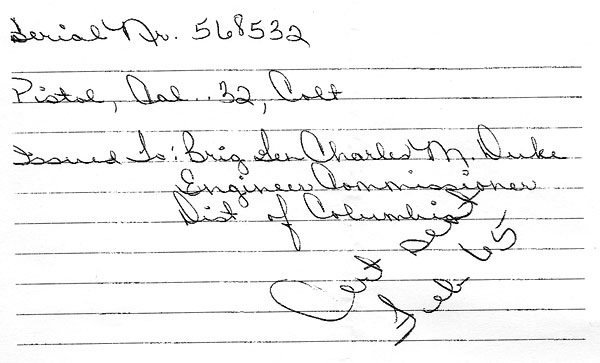 Serial Nr. 568532
Pistol, Cal. .32, Colt
Issued To: Brig Gen Charles M. Duke
Engineer Commissioner
Dist of Columbia
Cert Sent
Feb 65